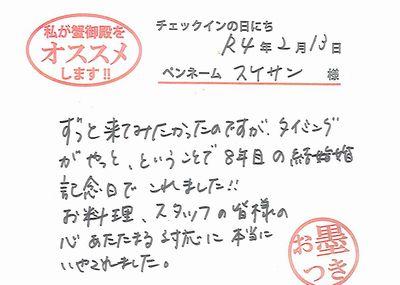 私が蟹御殿を
オススメ
します!!
チェックインの日にち
R4年2月13日
ペンネーム スイサン 様
ずっと来てみたかったのですが、タイミング
がやっと、ということで8年目の結婚
記念日でこれました!!
お料理、スタッフの皆様の
心あたたまる対応に本当に
いやされました。
お墨
つき